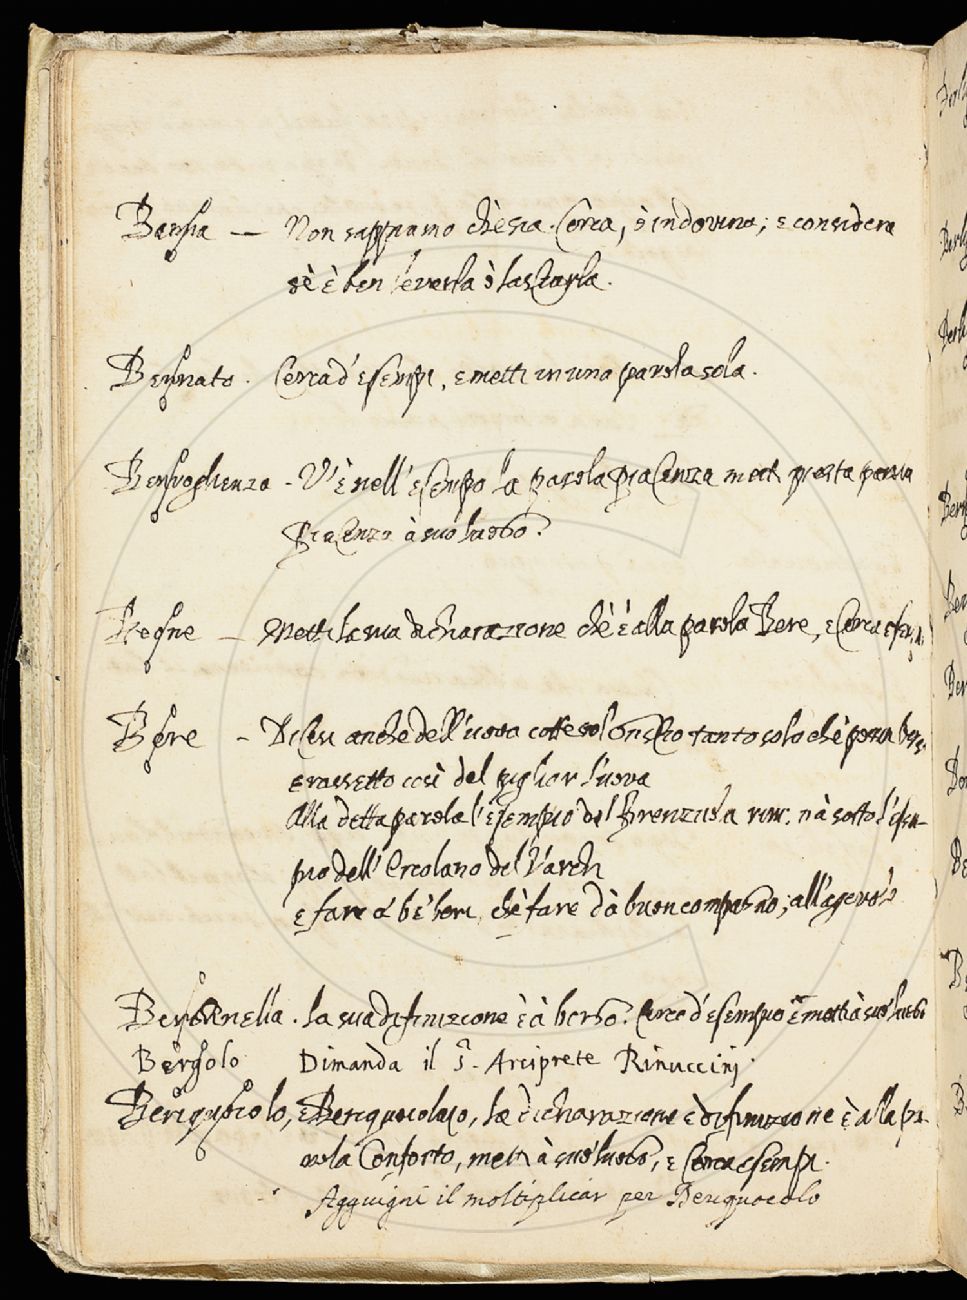 Bensia — Non sappiamo chè sia. Cerca, ò indovina; e considera
sè è ben leverla ò lasciarla.
Bennato. Cerca d'esempi, e metti in una parola sola.
Benvoglienza - V'è nell'esempo la parola piacenza metti questa parola
piacenza à suo luogo.
Bere — Metti la sua dichiarazione chè è alla parola Bere, e cerca esempi
Bere - Dicesi anche dell'uova cotte sol tanto solo chè possa bersi
e rassetto così del pigliar l'uova
Alla detta parola l'esempio del Firenzuola và sotto l'esem-
pio dell'Ercolano del Varchi
e fare à bè beni, chè fare dà buon compagno; all'
la sua difinizione è à bergo. Cerca d'esempio e metti à suo luogo
Bergolo Dimanda il S. Arciprete Rinuccini.
Berigucolo, e Berigucolaio, la dichiarazione e difinizione è alla pa-
rola Conforto, metti à suo luogo, e cerca esempi.
Aggiugni il moltiplicar per Beriquocolo